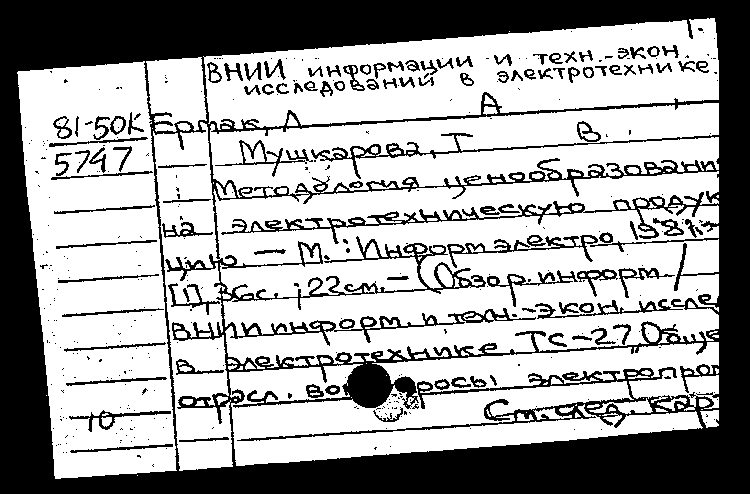 1.
ВНИИ информации и техн.-экон.
исследований в электротехнике.
81-50К Ермак, Л А
5747 Мушкарова, Т В.
Методология ценообразовани
на электротехническую продук
цию. — М. : Информэлектро, 1981.—
[1], 36с. ; 22см. — (Обзор. информ /
ВНИИ информ. и техн.-экон. иссле
в электротехнике. ТС-27, Обще
отрасл. вопросы электропро
10 См. след. кар